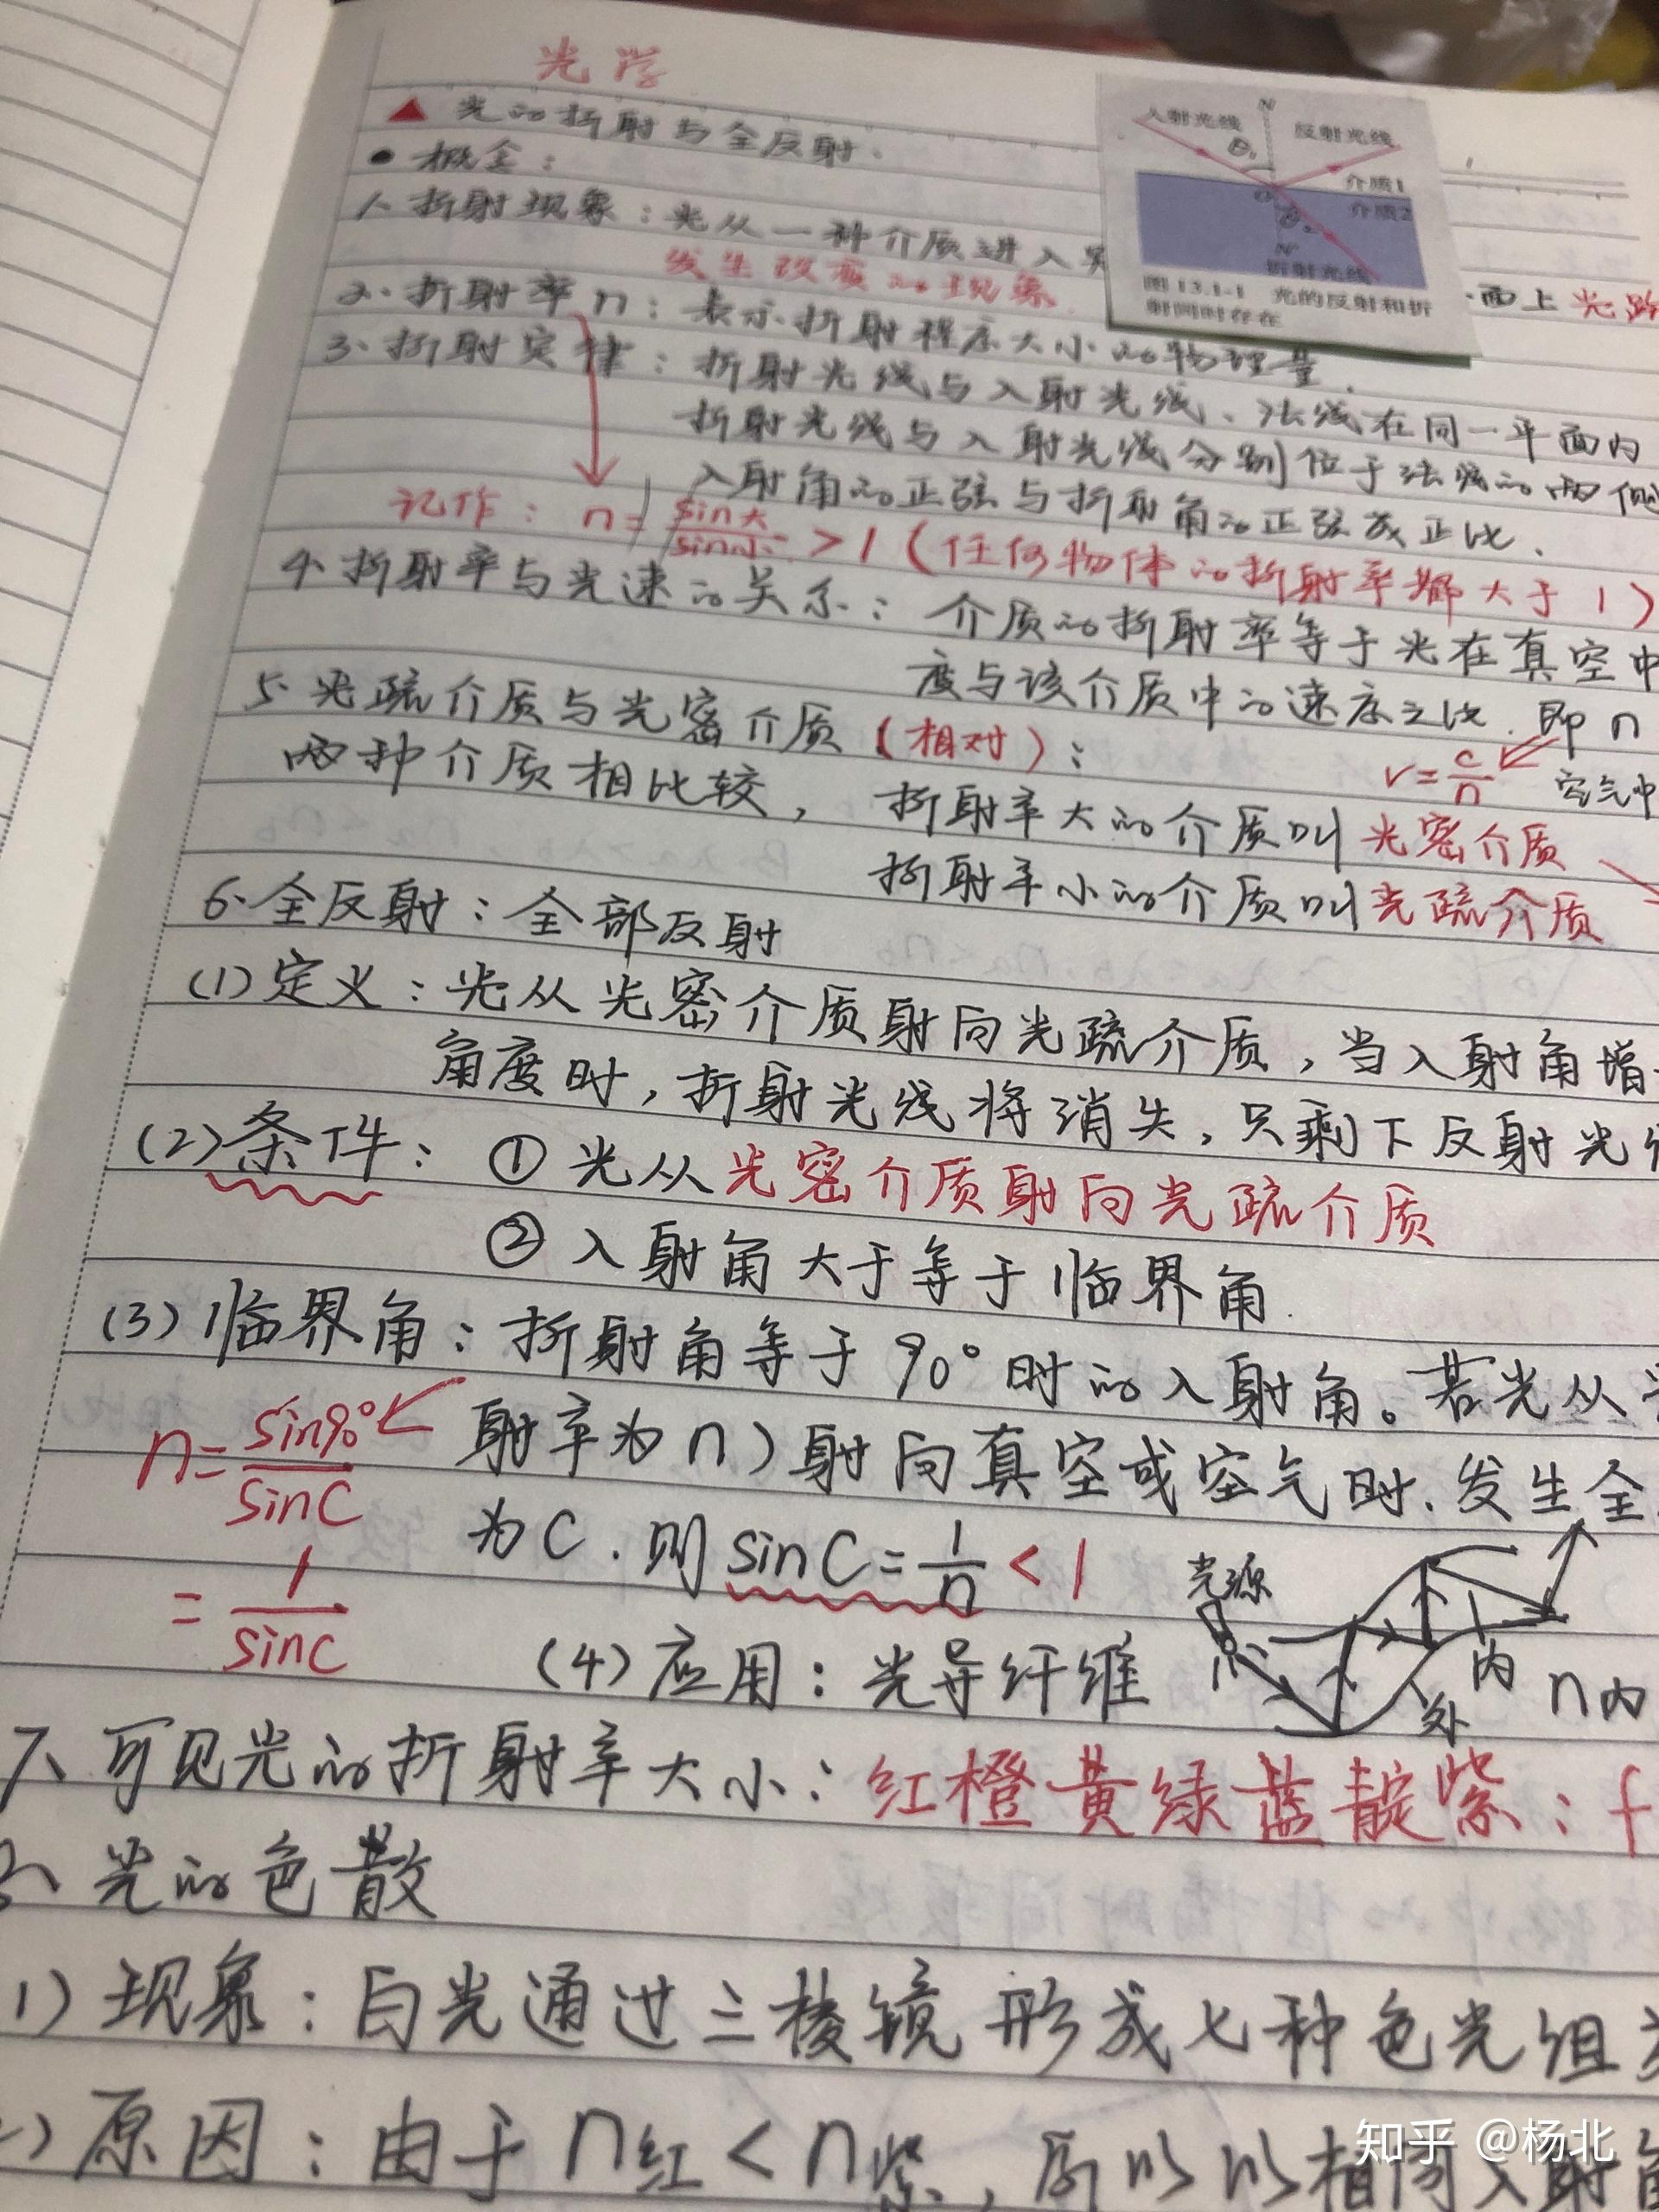 光学
▲ 光的折射与全反射.
● 概念:
1、折射现象:光从一种介质进入另
面上光路
发生改变的现象.
2、折射率n:表示折射程度大小的物理量.
3、折射定律:折射光线与入射光线、法线在同一平面内
折射光线与入射光线分别位于法线的两侧
入射角的正弦与折射角的正弦成正比.
记作: n= sin大/sin小 >1(任何物体的折射率都大于1)
4、折射率与光速的关系:介质的折射率等于光在真空中
度与该介质中的速度之比.即n
v=c/n 空气中
5、光疏介质与光密介质(相对):
两种介质相比较,折射率大的介质叫光密介质
折射率小的介质叫光疏介质
6、全反射:全部反射
(1)定义:光从光密介质射向光疏介质,当入射角增
角度时,折射光线将消失,只剩下反射光线
(2)条件:①光从光密介质射向光疏介质
②入射角大于等于临界角.
(3)临界角:折射角等于90°时的入射角。若光从
射率为n)射向真空或空气时.发生全
n=sin90°/sinC
为C.则sinC=1/n<1
=1/sinC
(4)应用:光导纤维
光源
内
外
n内
7、可见光的折射率大小:红橙黄绿蓝靛紫:f
、光的色散
1)现象:白光通过三棱镜形成七种色光组
)原因:由于n红<n紫,所以以相同入射角
入射光线
N
反射光线
θ₁
介质1
O
介质2
θ₂
N'
折射光线
图 13.1-1 光的反射和折
射同时存在
知乎 @杨北